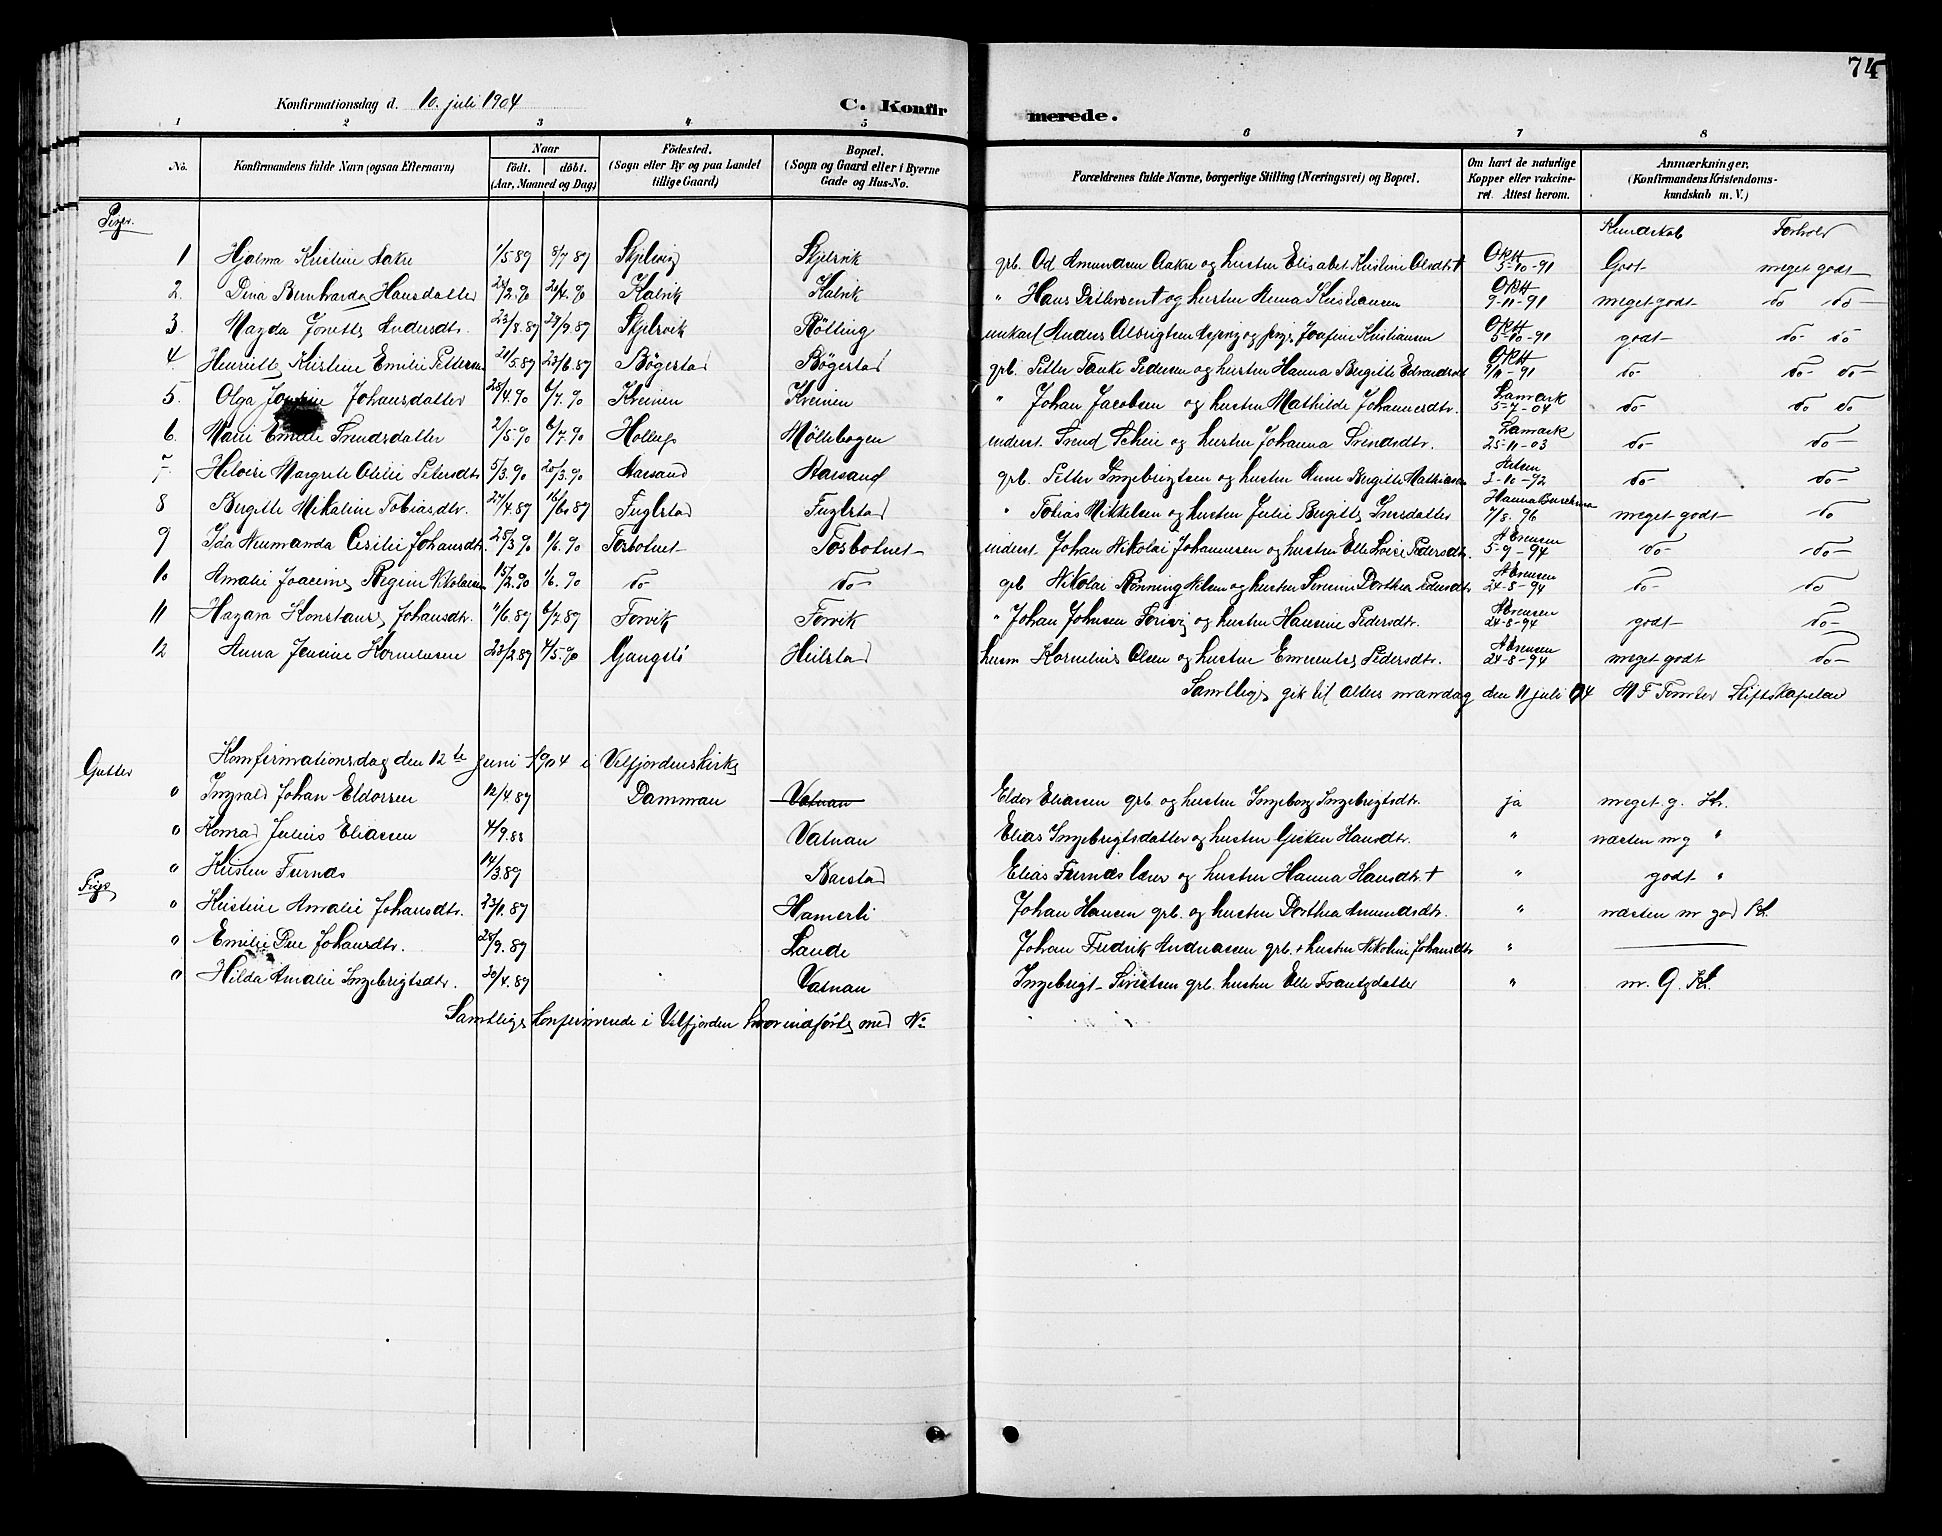 74
Konfirmationsdag d. 10. juli 1904 C. Konfirmerede.
1 2 3 4 5 6 7 8
No. Konfirmandens fulde Navn (ogsaa Efternavn) Naar født. døbt. (Aar, Maaned og Dag) Fødested. (Sogn eller By og paa Landet tillige Gaard) Bopæl. (Sogn og Gaard eller i Byerne Gade og Hus-No. Forældrenes fulde Navne, borgerlige Stilling (Næringsvei) og Bopæl. Om havt de naturlige Kopper eller vakcineret. Attest herom. Anmærkninger. (Konfirmandens Kristendomskundskab m. V.)
Piger. Kundskab Forhold
1 Hjalma Kristine Aakre 1/5 89 8/7 89 Skjelvig Skjelvik grb. Od Amundsen Aakre og hustru Elisabet Kristine Olsdtr † 5-10-91 Godt meget godt
2. Dina Bernharda Hansdatter 24/2. 90 20/4. 90 Kalvik Kalvik " Hans Ditlevsen † og hustru Anna Kristiansen 9-11-91 meget godt do do
3. Magda Jonette Andersdtr. 23/8. 89 29/9. 89 Skjelvik Rötting unkarl Anders Albrigtsen og pige Josefine Kristiansen 5-10-91 godt do do
4. Henriette Kristine Emilie Pettersen 21/5. 89 23/6. 89 Bögerstad Bögestad grb. Petter Tanke Pedersen og hustru Hanna Bergitte Edvardsdt 9/11-91 do do do
5. Olga Johansdatter 28/4. 90 6/7. 90 Kveinen Kveinen " Johan Jacobsen og hustru Mathilde Johannesdtr. Lamark 5-7-04 do do do
6. Marie Emilie Svendsdatter 2/5. 90 6/7. 90 Hollup Möllebogen inderst. Svend Scheie og hustru Johanna Svendsdtr. Lamark 25-11-03 do do
7. Heloise Margrete Otilie Petersdtr 5/3. 90 20/3. 90 Aarsand Aarsand grb. Petter Ingebrigtsen og hustru Anne Bergitte Mathiasen 3-10-92 do do
8 Bergitte Mikaline Tobiasdtr. 27/4. 89 16/6 89 Fuglstad Fuglstad " Tobias Mikkelsen og hustru Julie Bergitte Iversdatter 7/8. 96 meget godt do
9 Ida Neumanda Cesilie Johansdtr. 25/3 90 1/6. 90 Tosbotnet Tosbotnet inderst. Johan Nikolai Johannesen og hustru Elle Lovise Pedersdtr. A Evensen 5-9-94 do do
10 Amalie Joacime Regine Nikolaisen 15/2. 90 1/6. 90 do do grb Nikolai Rönning Nilsen og hustru Serine Dorthea Pedersdtr A Evensen 24-8-94 do do
11 Hagara Konstanse Johansdtr. 11/6. 89 6/7. 89 Forvik Forvik " Johan Johnsen Forvig og hustru Hansine Pedersdtr. A Evensen 24-8-94 godt do
12 Anna Jensine Korneliusen 23/2. 89 4/5. 90 Gangstö Heilstad husm Kornelius Olsen og hustru Emerentse Pedersdtr. A Evensen 24-8-94 meget godt do
Samtlige gik til Alters mandag den 11 juli 04 Stiftskapelan
Konfirmationsdag den 12te Juni 1904 i Velfjordens kirke
Gutter
" Ingvald Johan Eldorsen 12/4. 89 Damman Vatnan Eldor Eliassen grb. og hustru Ingeborg Ingebrigtsdtr. ja meget g. Kr.
" Konrad Julius Eliassen 4/9. 88 Vatnan Elias Ingebrigtsdatter og hustru Gjeken Hansdtr. " næsten mg "
" Kristen Furnes 14/3 89 Barstad Elias Furnes lærer og hustru Hanna Hansdtr. † " godt "
Piger
" Kristine Amalie Johansdtr. 23/1. 89 Hamerli Johan Hansen grb. og hustru Dorthea Amundsdtr. " næsten m god Kr.
" Emilie Johansdtr. 28/9. 89 Lande Johan Fredrik Andreassen grb. + hustru Nikoline Johansdtr "
" Hilda Amalie Ingebrigtsdtr. 20/4. 89 Vatnan Ingebrigt Sivertsen grb. hustru Elle Frantzdatter " m. G. Kr.
Samtlige konfirmerede i Velfjorden hvor indförte med No